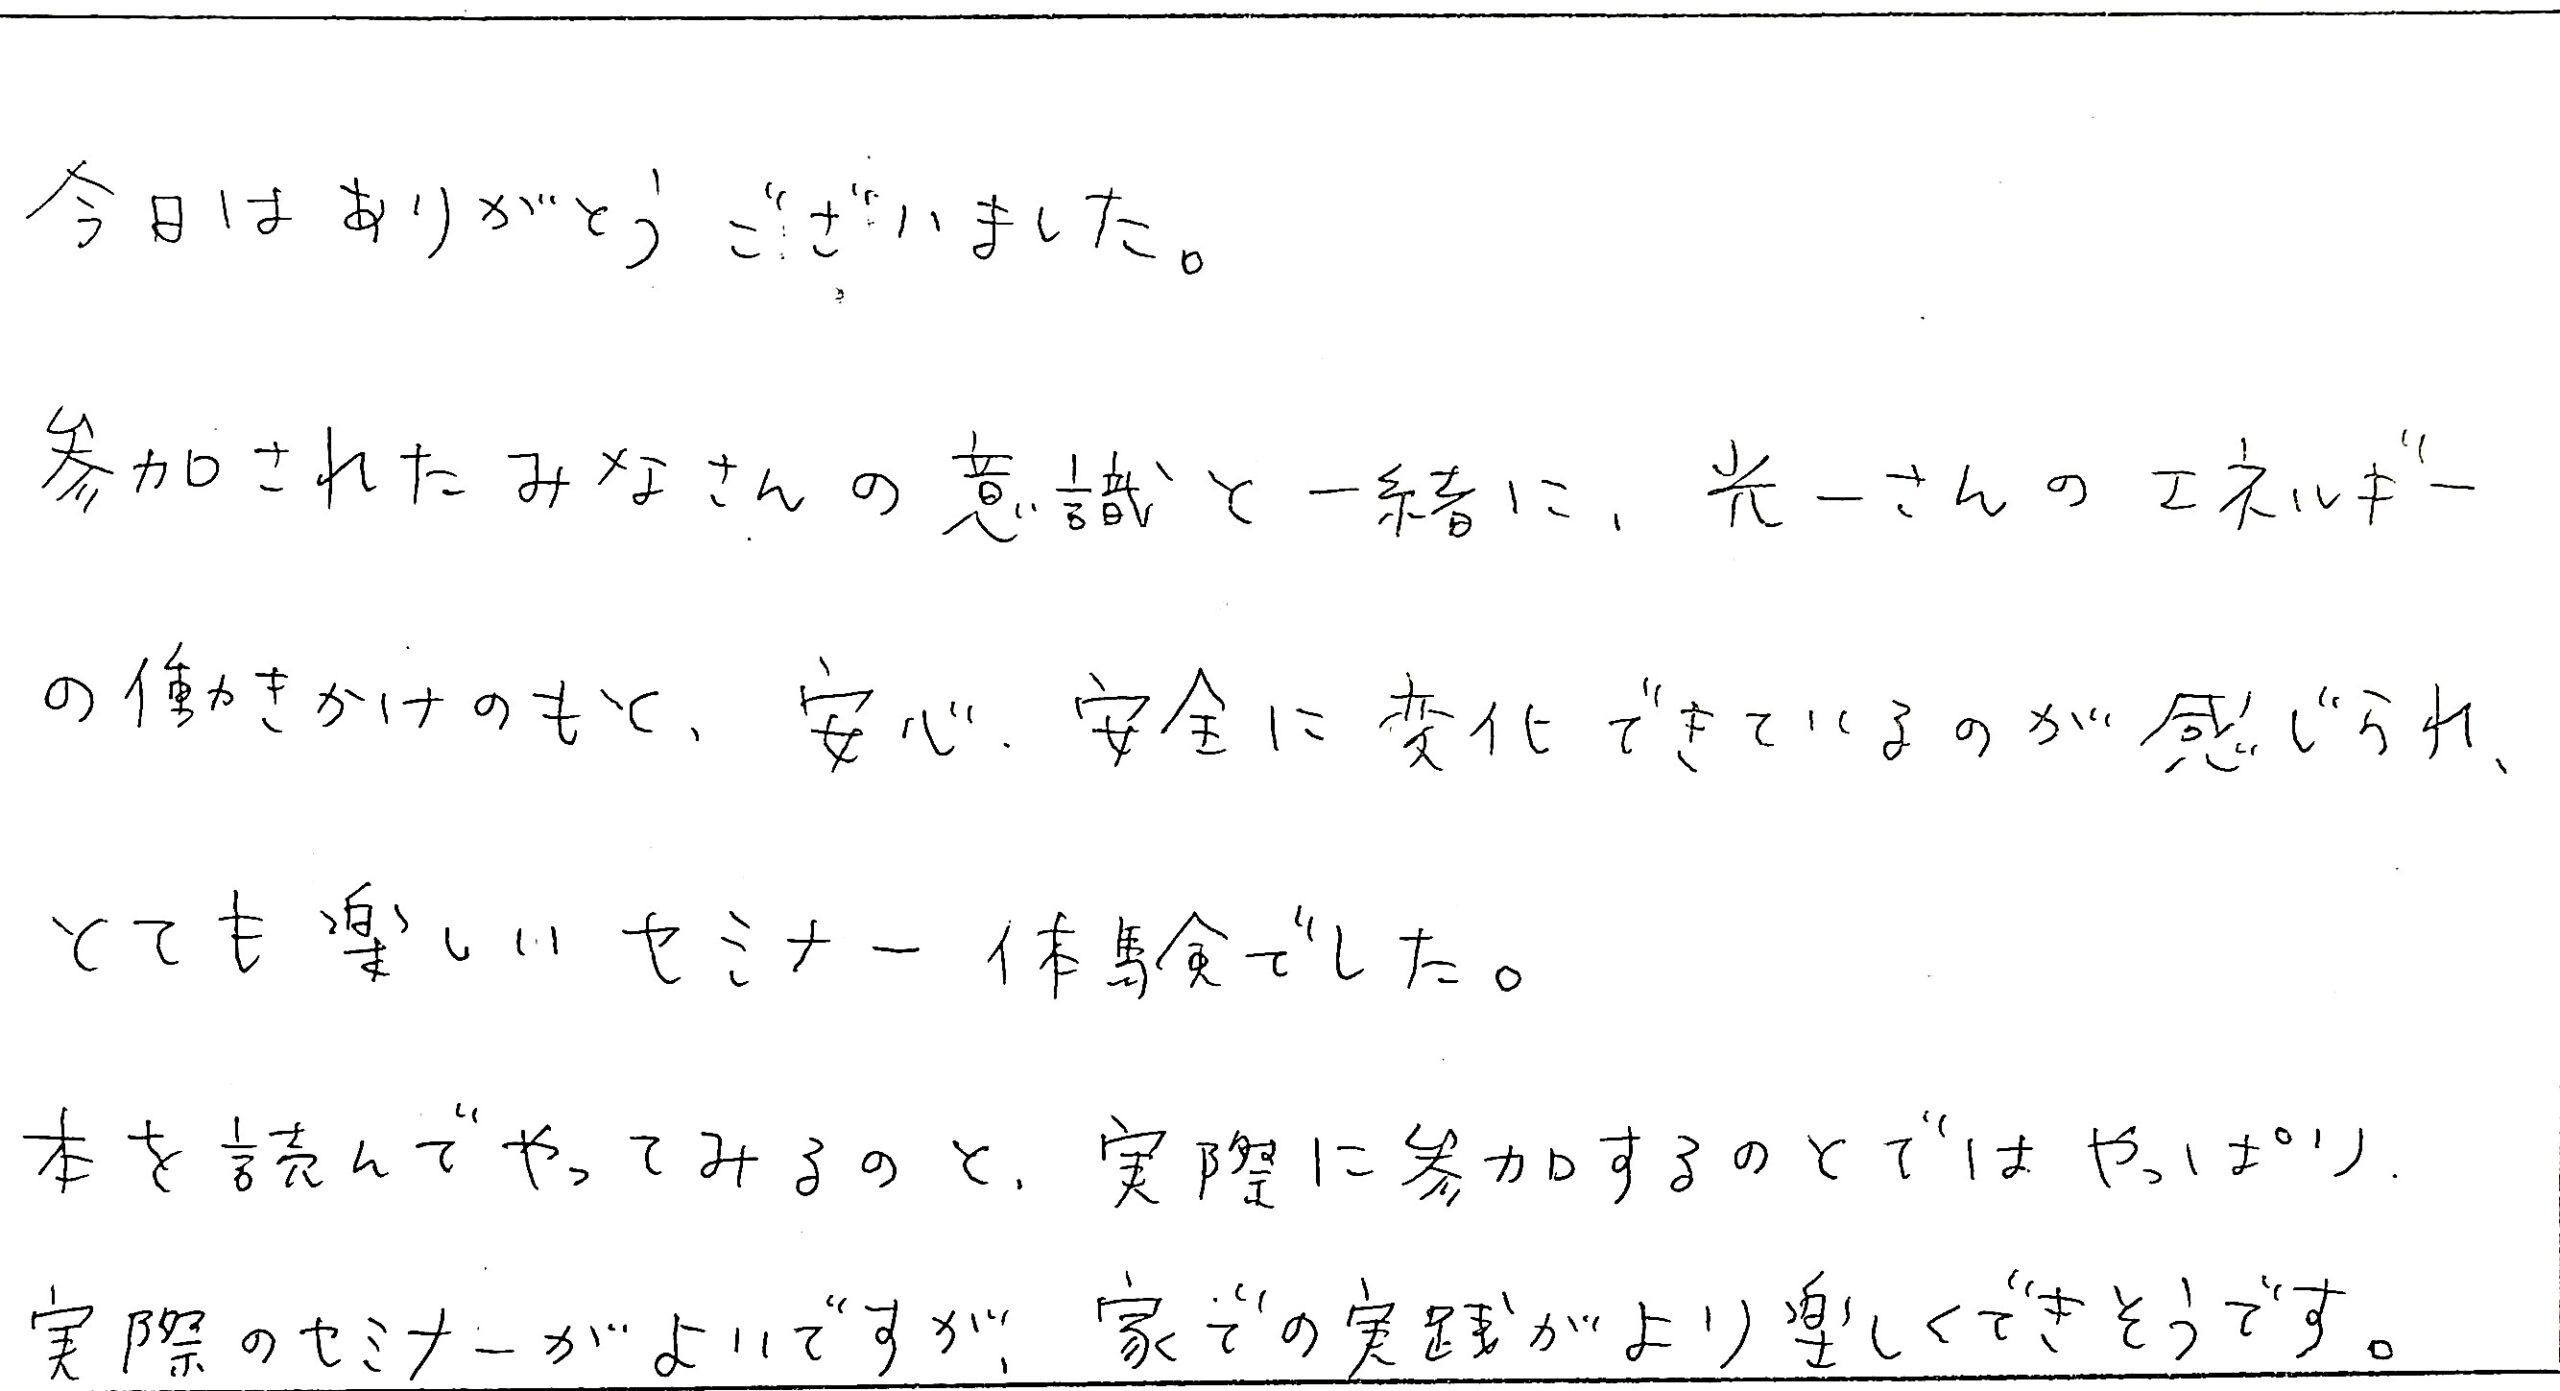 今日はありがとうございました。
参加されたみなさんの意識と一緒に、光一さんのエネルギー
の働きかけのもと、安心、安全に変化できているのが感じられ、
とても楽しいセミナー体験でした。
本を読んでやってみるのと、実際に参加するのとではやっぱり、
実際のセミナーがよいですが、家での実践がより楽しくできそうです。